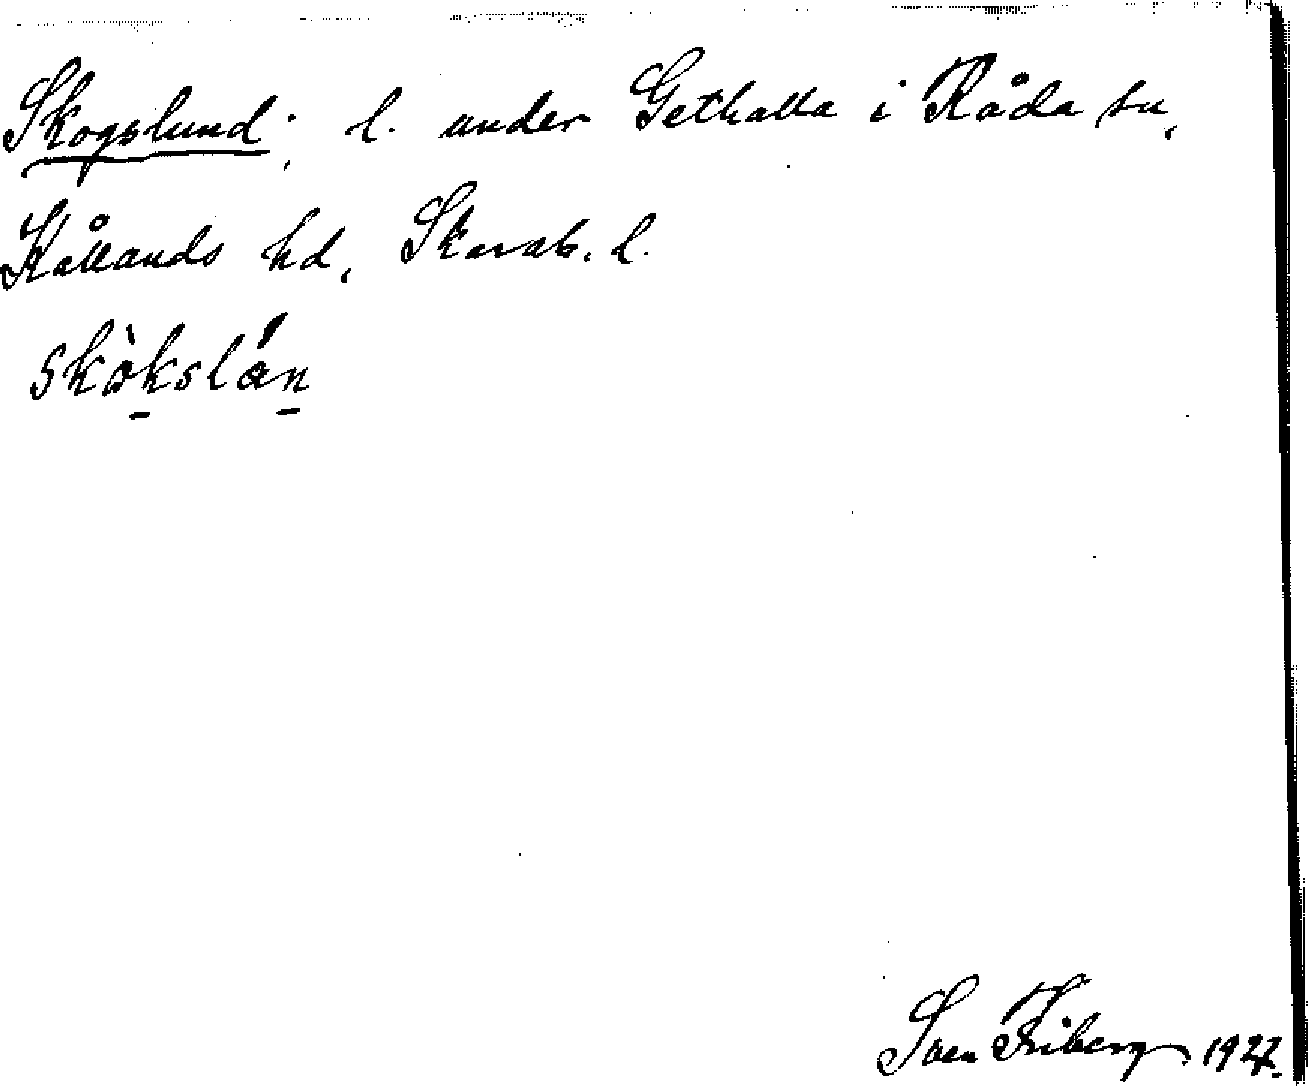 Skogslund; l. under Gethalla i Råda sn,
Kållands hd, Skarab. l.
skòkslán
Sven Friberg 1927.